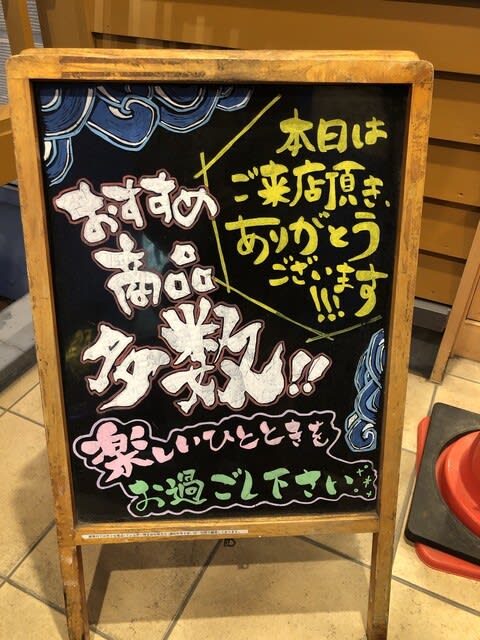 本日は
ご来店頂き、
ありがとう
ございます
!!!
おすすめ
商品
多数!!
楽しいひとときを
お過ごし下さい